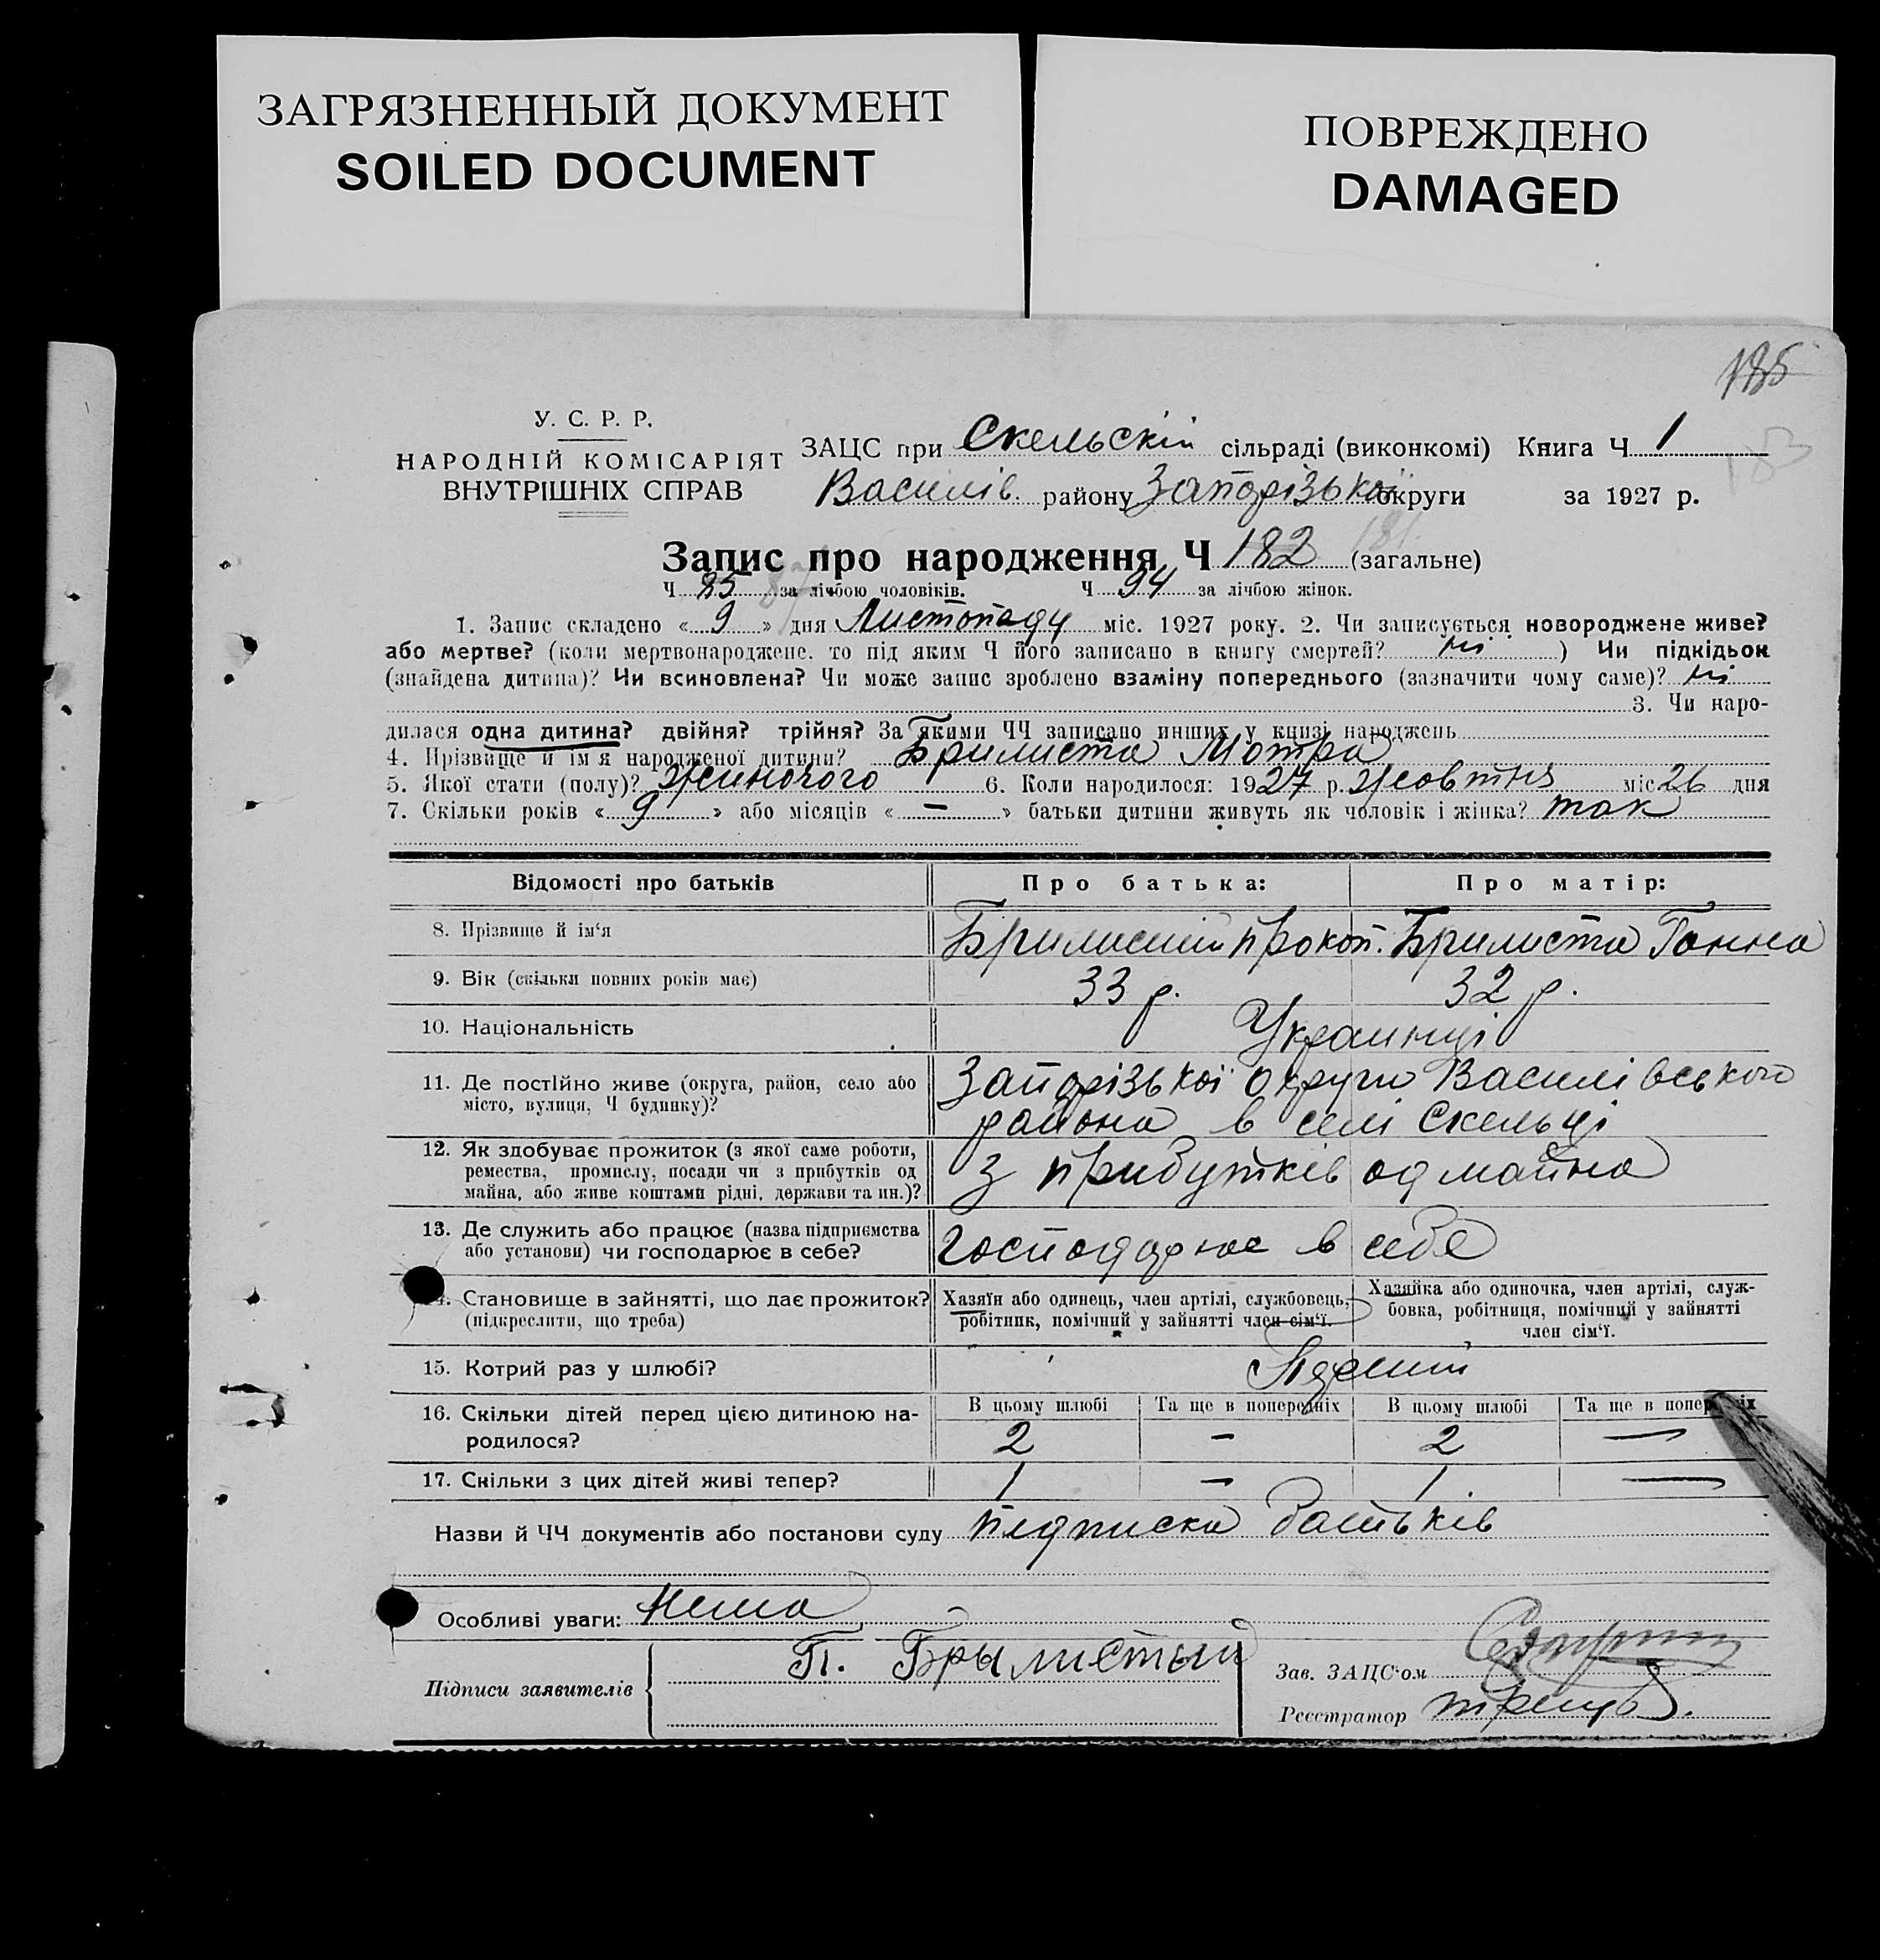 ЗАГРЯЗНЕННЫЙ ДОКУМЕНТ
SOILED DOCUMENT
ПОВРЕЖДЕНО
DAMAGED
185
У. С. Р. Р.
НАРОДНІЙ КОМІСАРІЯТ
ВНУТРІШНІХ СПРАВ
ЗАЦС при Скельскій сільраді (виконкомі) Книга Ч 1
183
Василів. району Запорізької округи за 1927 р.
Запис про народження Ч 182 181 (загальне)
Ч 85 87 за лічбою чоловіків. Ч 94 за лічбою жінок.
1. Запис складено « 9 » дня Листопаду міс. 1927 року. 2. Чи записується новороджене живе?
або мертве? (коли мертвонароджене, то під яким Ч його записано в книгу смертей? ні ) Чи підкідьок
(знайдена дитина)? Чи всиновлена? Чи може запис зроблено взаміну попереднього (зазначити чому саме)? ні
3. Чи наро-
дилася одна дитина? двійня? трійня? За якими ЧЧ записано инших у книзі народжень
4. Прізвище й ім'я народженої дитини? Брилиста Мотра
5. Якої стати (полу)? жиночого 6. Коли народилося: 1927 р. жовтня міс 26 дня
7. Скільки років « 9 » або місяців « — » батьки дитини живуть як чоловік і жінка? так
Відомості про батьків Про батька: Про матір:
8. Прізвище й ім‘я Брилистий Прокоп. Брилиста Ганна
9. Вік (скільки повних років має) 33 р. 32 р.
10. Національність Украинці
11. Де постійно живе (округа, район, село або
місто, вулиця, Ч будинку)?
Запорізької округи Василівського
района в селі Скельці
12. Як здобуває прожиток (з якої саме роботи,
ремества, промислу, посади чи з прибутків од
майна, або живе коштами рідні, держави та ин.)?
з прибутків од майна
13. Де служить або працює (назва підприємства
або установи) чи господарює в себе?
господарює в себе
14. Становище в зайнятті, що дає прожиток?
(підкреслити, що треба)
Хазяїн або одинець, член артілі, службовець,
робітник, помічний у зайнятті член сім‘ї.
Хазяйка або одиночка, член артілі, служ-
бовка, робітниця, помічний у зайнятті
член сім‘ї.
15. Котрий раз у шлюбі?
16. Скільки дітей перед цією дитиною на-
родилося?
В цьому шлюбі Та ще в попередніх В цьому шлюбі Та ще в попередніх
2 — 2 —
17. Скільки з цих дітей живі тепер? 1 — 1. —
Назви й ЧЧ документів або постанови суду підписка батьків
Особливі уваги: Нема
Підписи заявителів П. Брылистый
Зав. ЗАЦС‘ом
Реєстратор